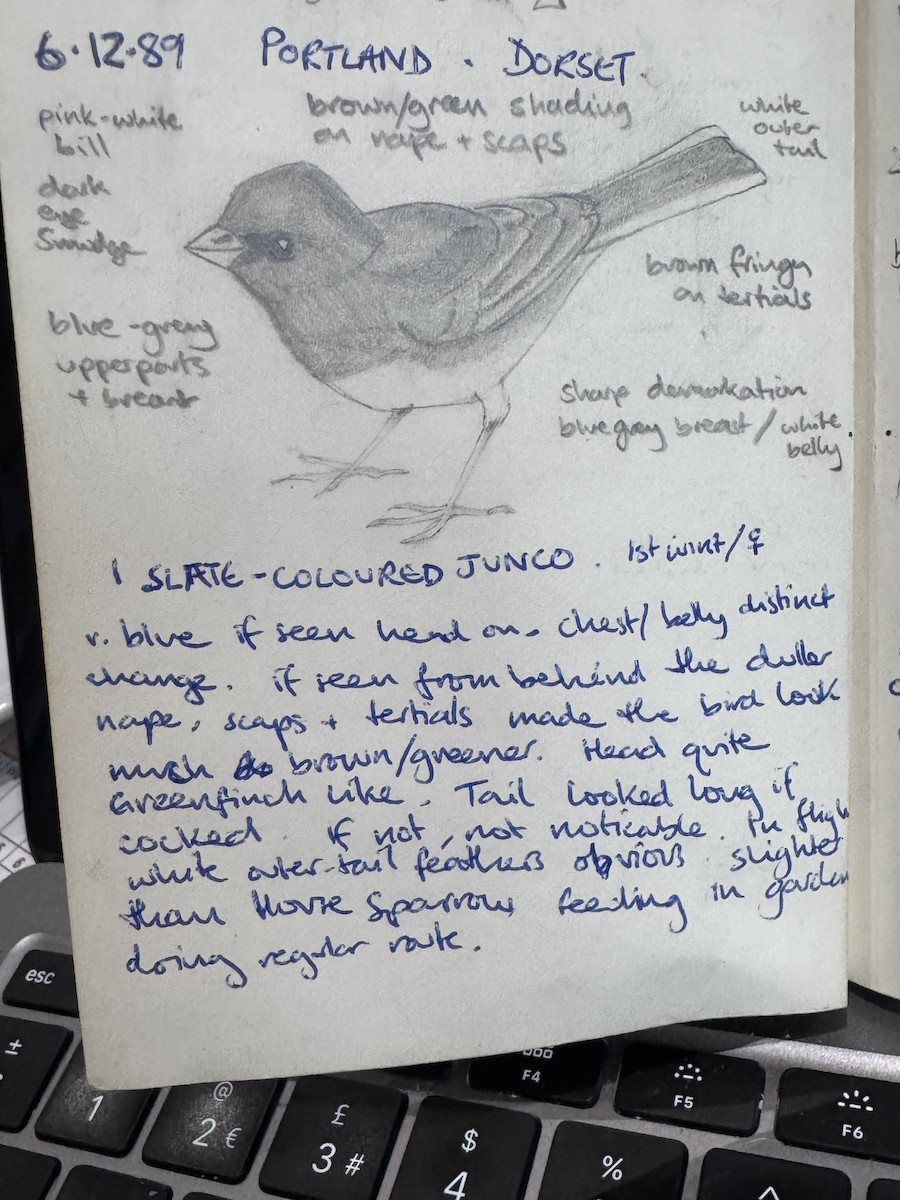 6.12.89 PORTLAND . DORSET.
pink-white
bill
brown/green shading
on nape + scaps
white
outer
tail
dark
eye
Smudge
brown fringe
on tertials
blue-grey
upperparts
+ breast
sharp demarkation
blue grey breast / white
belly
1 SLATE-COLOURED JUNCO. 1st wint/♀
v. blue if seen head on. chest/ belly distinct
change. if seen from behind the duller
nape, scaps + tertials made the bird look
much brown/greener. Head quite
Greenfinch like. Tail looked long if
cocked. if not, not noticable. In fligh
white outer-tail feathers obvious slighter
than House Sparrow feeding in garden
doing regular route.
esc
±
1
@
2 €
£
3 #
$
4
%
^
F4
F5
F6